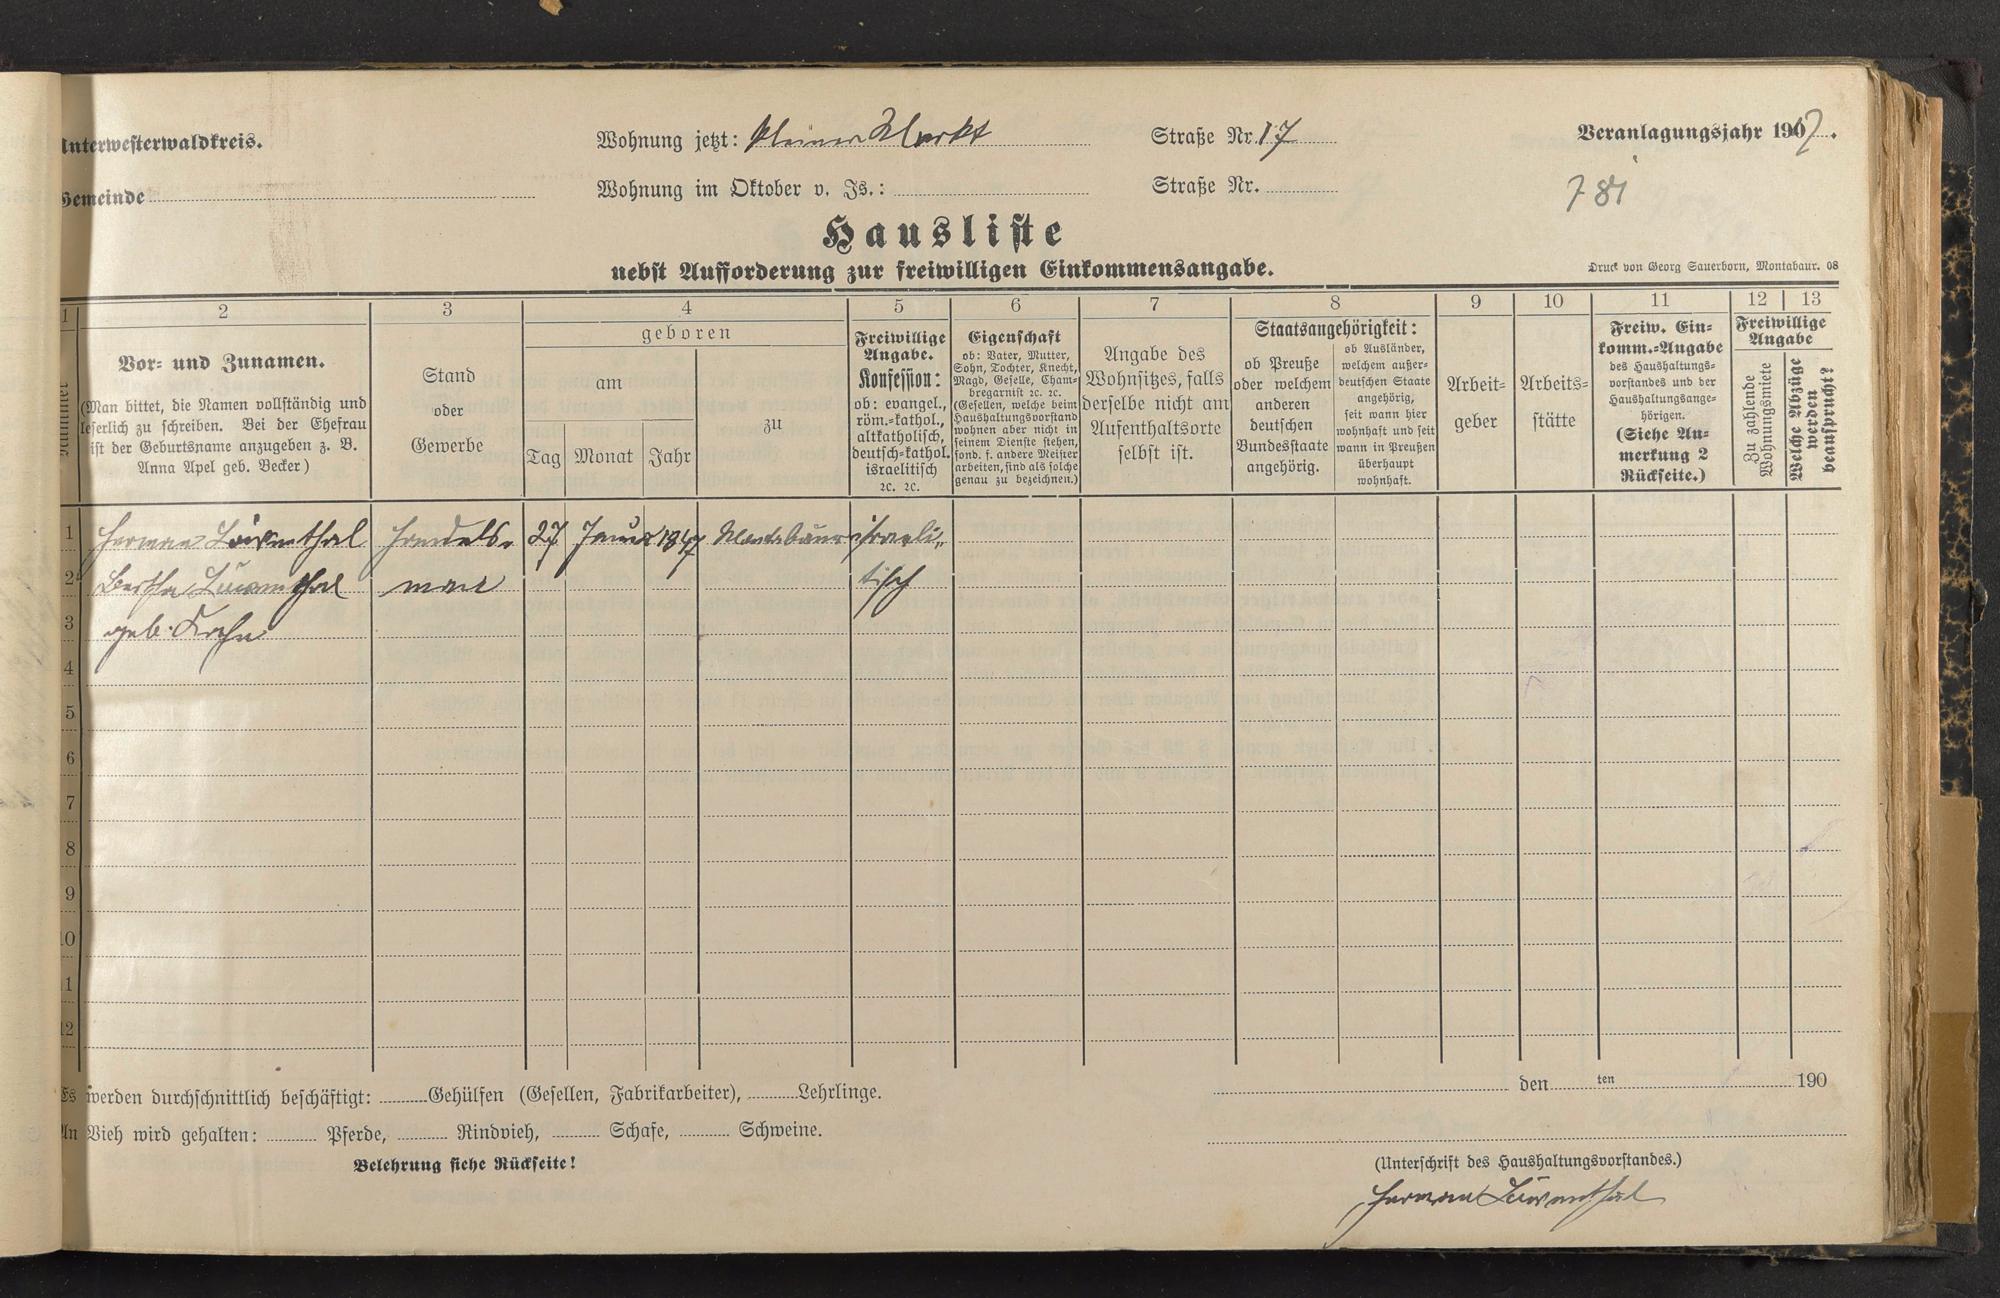 Unterwesterwaldkreis.
Wohnung jetzt: kleiner Markt Straße Nr. 17
Veranlagungsjahr 1907.
Gemeinde
Wohnung im Oktober v. Js.: Straße Nr.
781
Hausliste
nebst Aufforderung zur freiwilligen Einkommensangabe.
Druck von Georg Sauerborn, Montabaur. 08
1 2 3 4 5 6 7 8 9 10 11 12 13
Nummer
Vor- und Zunamen.
(Man bittet, die Namen vollständig und
leserlich zu schreiben. Bei der Ehefrau
ist der Geburtsname anzugeben z. B.
Anna Apel geb. Becker)
Stand
oder
Gewerbe
geboren
am
Tag Monat Jahr
zu
Freiwillige
Angabe.
Konfession:
ob: evangel.,
röm.-kathol.,
altkatholisch,
deutsch-kathol.
israelitisch
ꝛc. ꝛc.
Eigenschaft
ob: Vater, Mutter,
Sohn, Tochter, Knecht,
Magd, Geselle, Cham-
bregarnist ꝛc. ꝛc.
(Gesellen, welche beim
Haushaltungsvorstand
wohnen aber nicht in
seinem Dienste stehen,
sond. f. andere Meister
arbeiten, sind als solche
genau zu bezeichnen.)
Angabe des
Wohnsitzes, falls
derselbe nicht am
Aufenthaltsorte
selbst ist.
Staatsangehörigkeit:
ob Preuße
oder welchem
anderen
deutschen
Bundesstaate
angehörig.
ob Ausländer,
welchem außer-
deutschen Staate
angehörig,
seit wann hier
wohnhaft und seit
wann in Preußen
überhaupt
wohnhaft.
Arbeit-
geber
Arbeits-
stätte
Freiw. Ein-
komm.-Angabe
des Haushaltungs-
vorstandes und der
Haushaltungsange-
hörigen.
(Siehe An-
merkung 2
Rückseite.)
Freiwillige
Angabe
Zu zahlende
Wohnungsmiete
Welche Abzüge
werden
beansprucht?
1 Herman Löwenthal Handels- 27 Januar 1847 Montabaur israeli-
2 Bertha Löwenthal man tisch
3 geb. Kahn
4
5
6
7
8
9
10
11
12
Es werden durchschnittlich beschäftigt: Gehülfen (Gesellen, Fabrikarbeiter), Lehrlinge.
den ten 190
An Vieh wird gehalten: Pferde, Rindvieh, Schafe, Schweine.
Belehrung siehe Rückseite!
(Unterschrift des Haushaltungsvorstandes.)
Herman Löwenthal